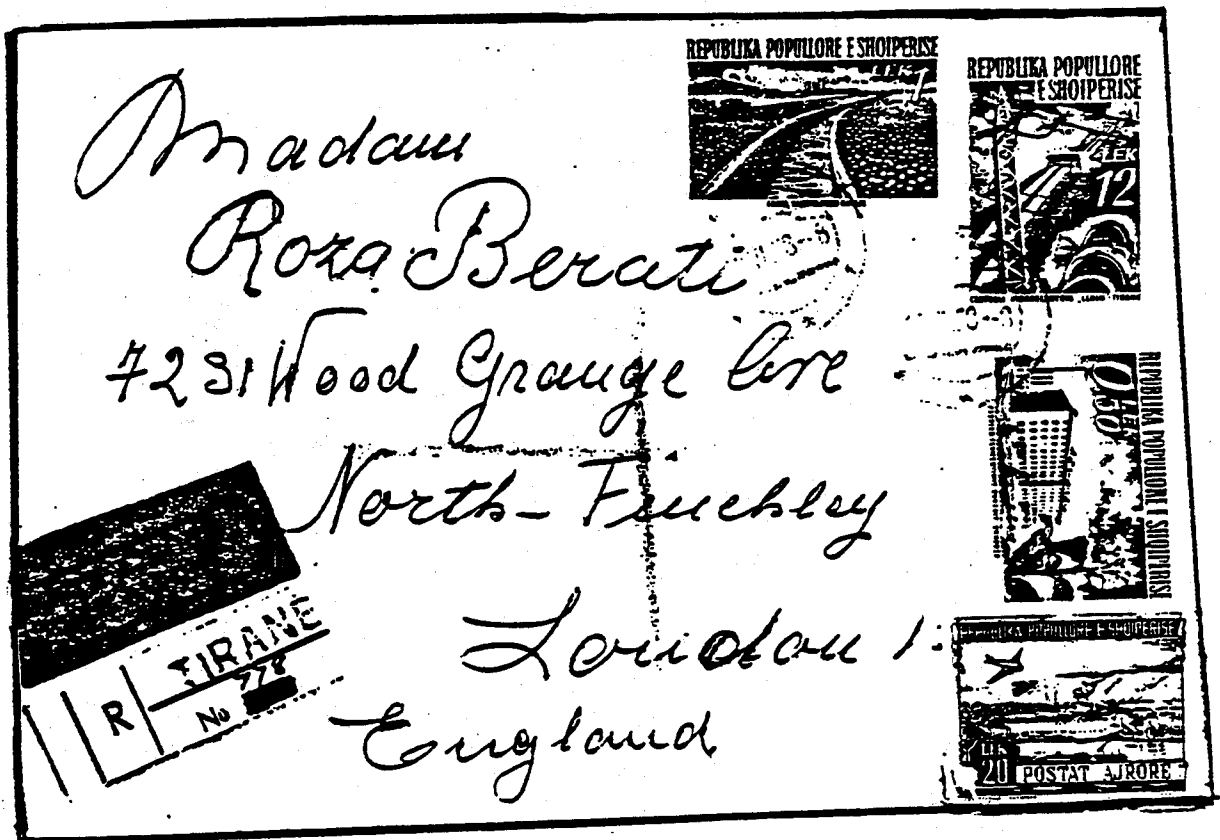 REPUBLIKA POPULLORE E SHQIPERISE
LEK 1
REPUBLIKA POPULLORE
E SHQIPERISE
LEK
12
Madam
Roza Berati
72 31 Wood Grange Ave
North-Finchley
London 1.
England
0.50
REPUBLIKA POPULLORE E SHQIPERISE
TIRANE
R
No 778
REPUBLIKA POPULLORE E SHQIPERISE
LEK
20
POSTAT AJRORE